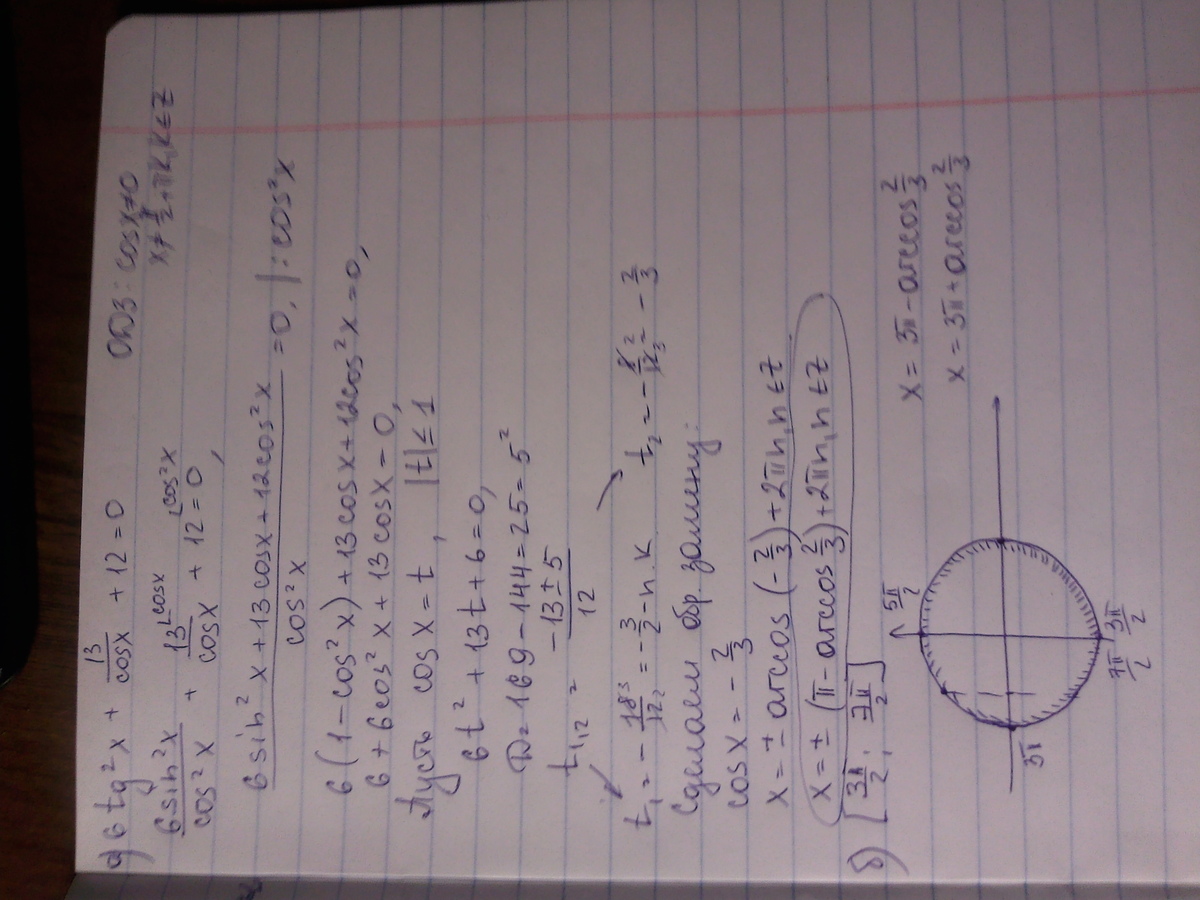 а) 6 tg²x + 13/cosx + 12 = 0   ОДЗ: cosx≠0
x ≠ π/2 + πk, k∈Z
6sin²x/cos²x + 13⌊cosx/cosx + 12⌊cos²x = 0,
(6sin²x + 13cosx + 12cos²x)/cos²x = 0, | : cos²x
6(1-cos²x) + 13cosx + 12cos²x = 0,
6 + 6cos²x + 13cosx = 0,
Пусть cosx = t, |t| ≤ 1
6t² + 13t + 6 = 0,
D = 169 - 144 = 25 = 5²
t₁,₂ = (-13 ± 5)/12
t₁ = -18 3/12 2 = -3/2 - п.к   t₂ = -8 2/12 3 = -2/3
Сделаем обр. замену:
cosx = -2/3
x = ± arccos(-2/3) + 2πn, n∈Z
x = ± (π - arccos 2/3) + 2πn, n∈Z
б) [3π/2; 7π/2]
5π/2
3π
7π/2 3π/2
x = 3π - arccos 2/3
x = 3π + arccos 2/3